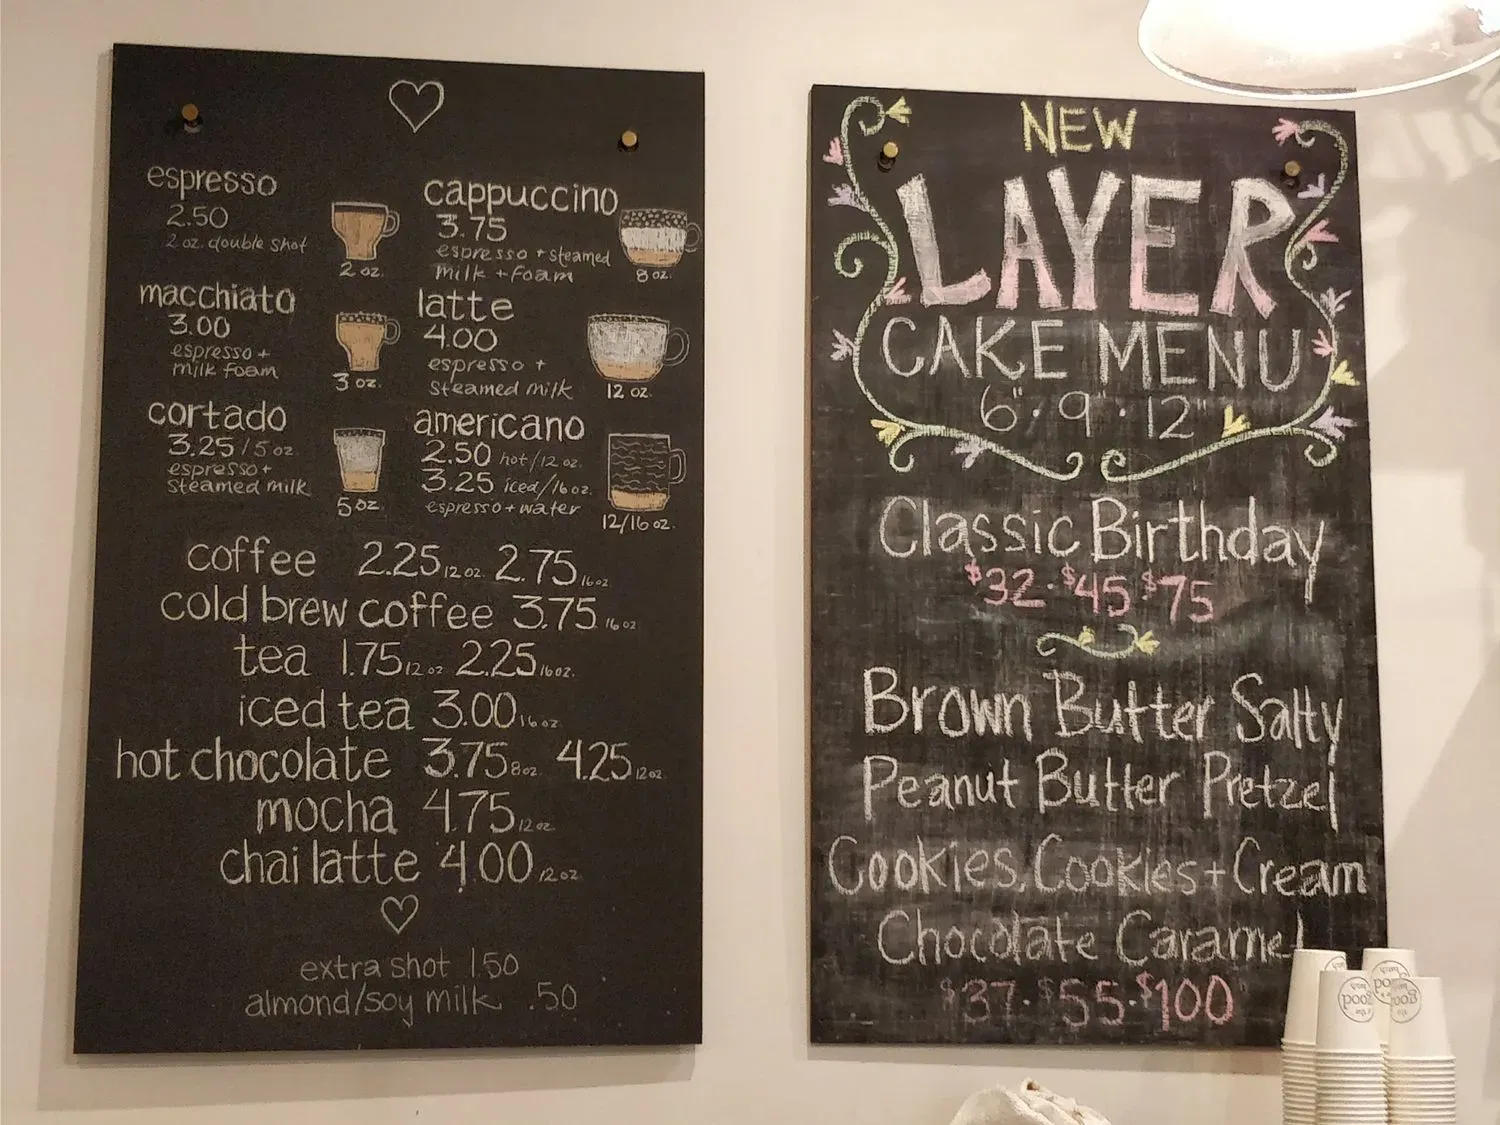 espresso
2.50
2 oz. double shot
2 oz.
macchiato
3.00
espresso +
milk foam
3 oz.
cortado
3.25 / 5 oz.
espresso +
steamed milk
5 oz
cappuccino
3.75
espresso + steamed
milk + foam
8 oz.
latte
4.00
espresso +
steamed milk
12 oz.
americano
2.50 hot/12 oz.
3.25 iced/16 oz.
espresso + water
12/16 oz.
coffee 2.25 12 oz. 2.75 16 oz
cold brew coffee 3.75 16 oz
tea 1.75 12 oz 2.25 16 oz.
iced tea 3.00 16 oz
hot chocolate 3.75 8 oz 4.25 12 oz.
mocha 4.75 12 oz
chai latte 4.00 12 oz
extra shot 1.50
almond/soy milk .50
NEW
LAYER
CAKE MENU
6" · 9" · 12"
Classic Birthday
$32 · $45 $75
Brown Butter Salty
Peanut Butter Pretzel
Cookies, Cookies + Cream
Chocolate Caramel
$37 · $55 · $100
the
good
batch